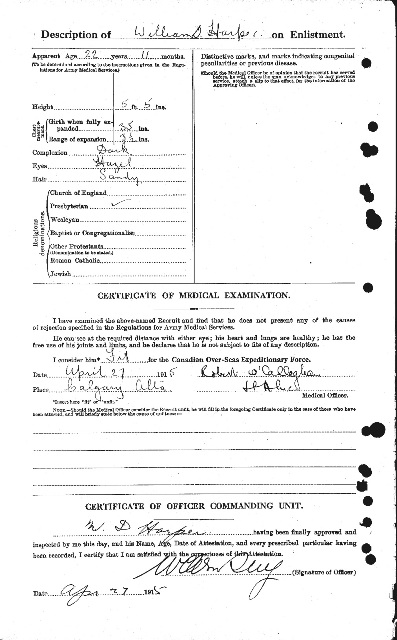 Description of William D Harper on Enlistment.
Apparent Age 22 years 11 months.
(To be determined according to the instructions given in the Regulations for Army Medical Services.)
Distinctive marks, and marks indicating congenital peculiarities or previous disease.
(Should the Medical Officer be of opinion that the recruit has served before, he will, unless the man acknowledges to any previous service, attach a slip to that effect, for the information of the Approving Officer.)
Height 5 ft. 5 ins.
Chest measurement
Girth when fully expanded 35 ins.
Range of expansion ins.
Complexion Dark
Eyes Hazel
Hair Sandy
Religious denominations.
Church of England
Presbyterian ✓
Wesleyan
Baptist or Congregationalist
Other Protestants
(Denomination to be stated.)
Roman Catholic
Jewish
CERTIFICATE OF MEDICAL EXAMINATION.
I have examined the above-named Recruit and find that he does not present any of the causes
of rejection specified in the Regulations for Army Medical Services.
He can see at the required distance with either eye; his heart and lungs are healthy; he has the
free use of his joints and limbs, and he declares that he is not subject to fits of any description.
I consider him* Fit for the Canadian Over-Seas Expeditionary Force.
Date April 27 1915 Robert O'Callaghan
Place Calgary Alta
Medical Officer.
*Insert here "fit" or "unfit."
NOTE.—Should the Medical Officer consider the Recruit unfit, he will fill in the foregoing Certificate only in the case of those who have
been attested, and will briefly state below the cause of unfitness:—
CERTIFICATE OF OFFICER COMMANDING UNIT.
W. D Harper having been finally approved and
inspected by me this day, and his Name, Age, Date of Attestation, and every prescribed particular having
been recorded, I certify that I am satisfied with the correctness of this Attestation.
(Signature of Officer)
Date Apr 27 1915